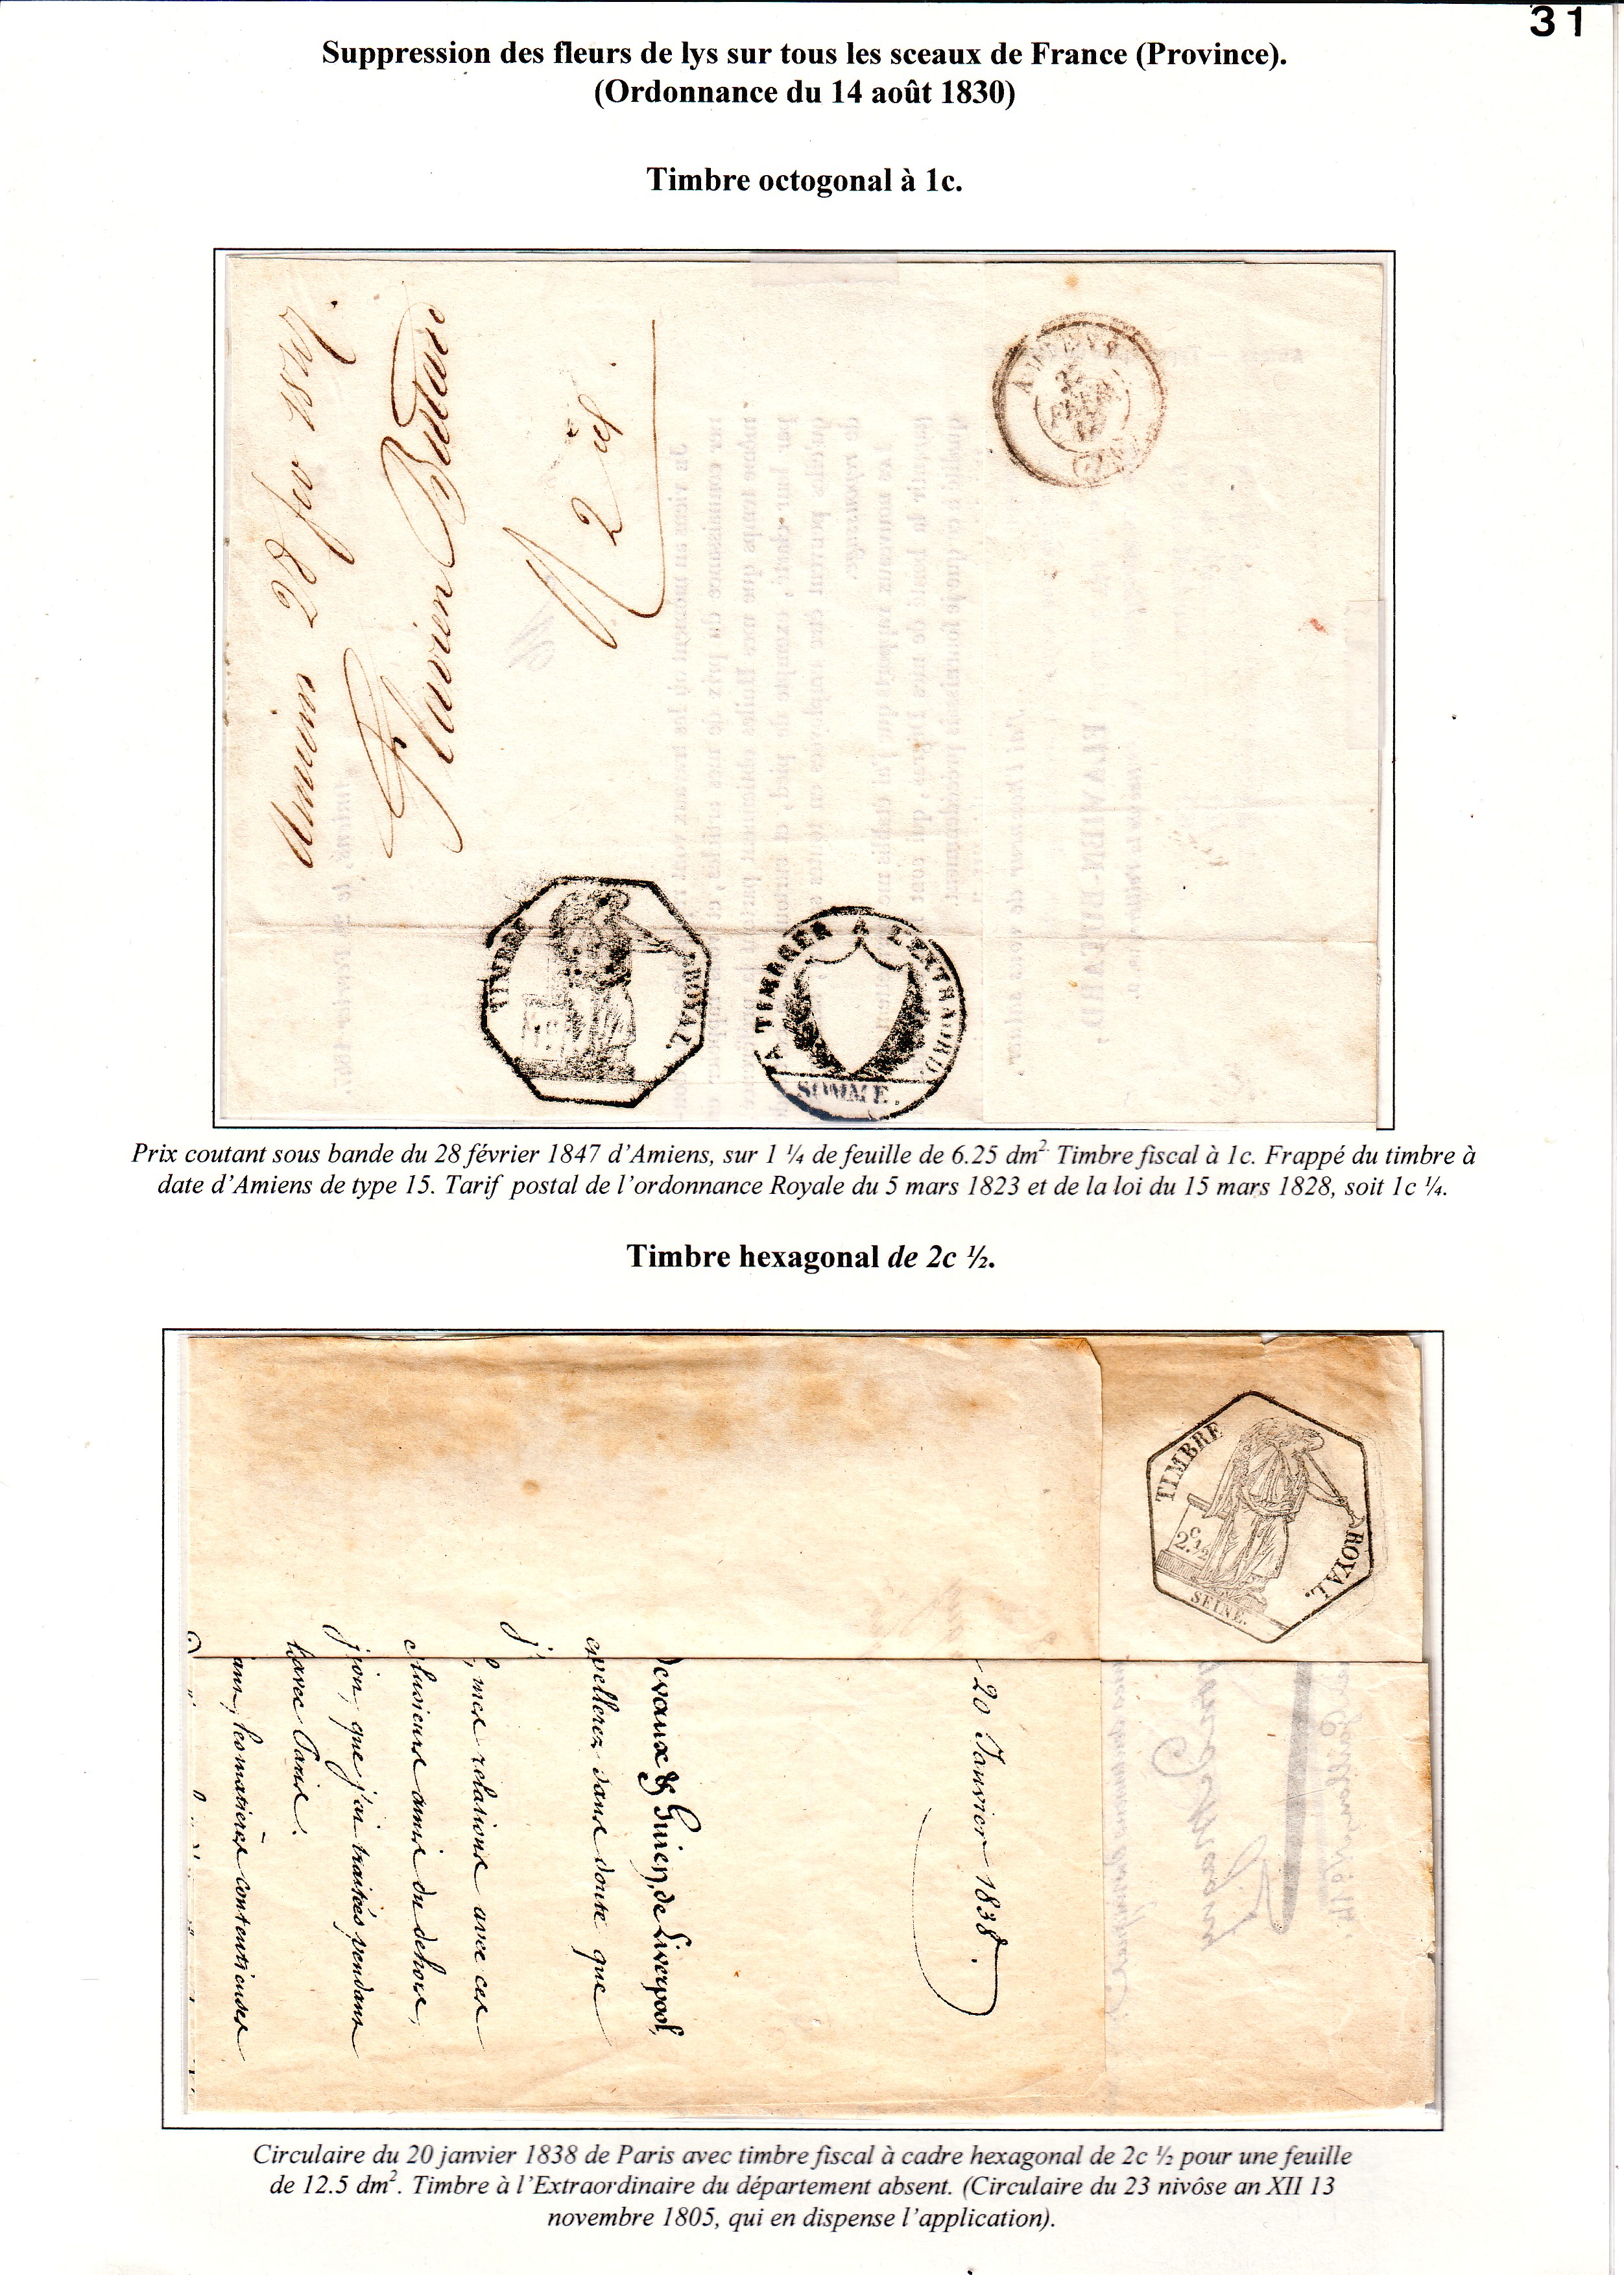 31
Suppression des fleurs de lys sur tous les sceaux de France (Province).
(Ordonnance du 14 août 1830)
Timbre octogonal à 1c.
Amiens 28 fer 1847.
Flavien Buttard
2
TIMBRE ROYAL.
A TIMBRER A L'EXTRAORD.
SOMME.
Prix coutant sous bande du 28 février 1847 d'Amiens, sur 1 ¼ de feuille de 6.25 dm². Timbre fiscal à 1c. Frappé du timbre à
date d'Amiens de type 15. Tarif postal de l'ordonnance Royale du 5 mars 1823 et de la loi du 15 mars 1828, soit 1c ¼.
Timbre hexagonal de 2c ½.
TIMBRE ROYAL.
2.c ½
SEINE.
20 Janvier 1838.
Devaux & Guien, de Liverpool,
sans doute que
mes relations avec ces
amis du dehors,
que j'ai traitées pendant
avec Paris.
les matières contentieuses
Circulaire du 20 janvier 1838 de Paris avec timbre fiscal à cadre hexagonal de 2c ½ pour une feuille
de 12.5 dm². Timbre à l'Extraordinaire du département absent. (Circulaire du 23 nivôse an XII 13
novembre 1805, qui en dispense l'application).